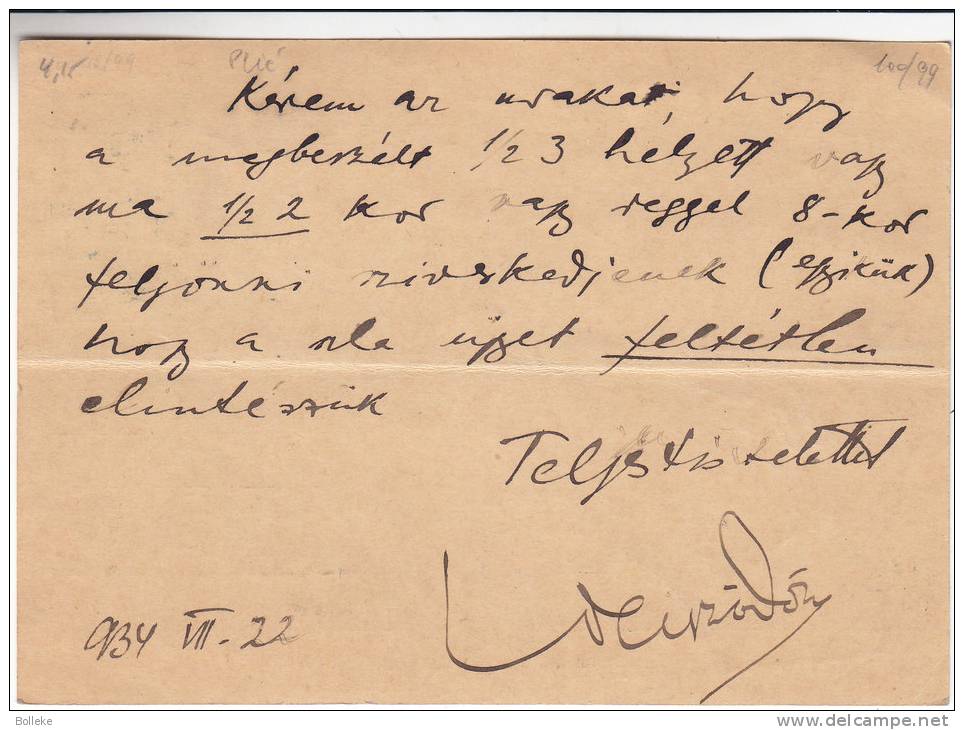 4,15 12/99 Plié 100/99
Kérem az urakat hogy
a megbeszélt 1/2 3 hélyett vagy
ma 1/2 2 kor vagy reggel 8-kor
feljönni sziveskedjenek (egyikük)
hogy a ügyet feltétlen
elintézzük
Teljes tisztelettel
934 VII-22
Bolleke
www.delcampe.net